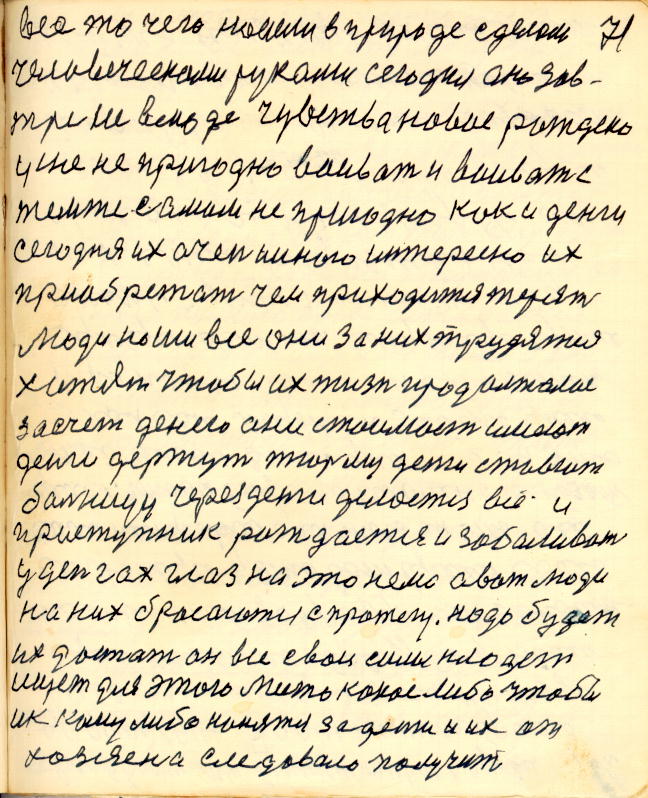 все то чего нашли в природе сделали 71
человеческими руками сегодня оно зав-
тре не в моде чувства новое рождено
уже не пригодно воиват и воиват с
темже самим не пригодно как и денги
сегодня их очен много интересно их
приобретат чем приходится терят
Люди наши все они за них трудятся
хотят чтобы их жизн продолжалас
засчет денег они стоимост имеют
денги держут тюрму денги ставют
балницу через денги делается все и
приступник рождается и заболиват
у денгах глаз на это нема а вот люди
на них бросаются с протегу. надо будет
их достат он все свои сили кладет
ищет для этого место какое либо чтобы
ик кому либо нанятя за денги и их от
хозяена следовало получит